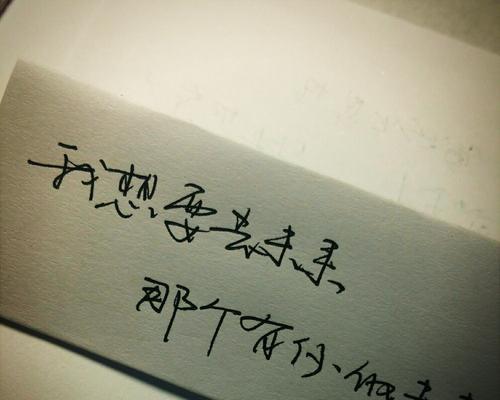 我想要去未来、
那个有你、